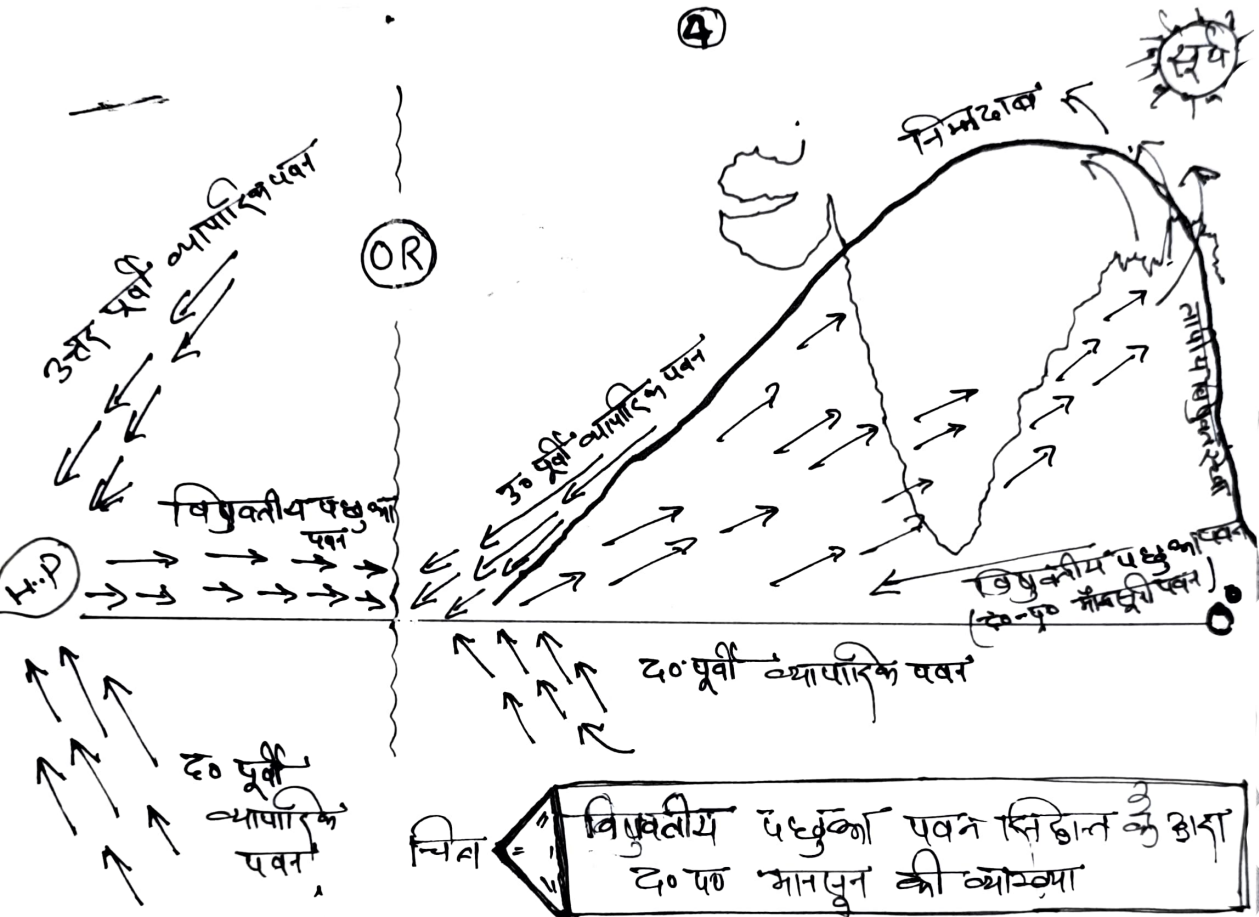 4
सूर्य
निम्नदाब
उत्तर पूर्वी व्यापारिक पवन
OR
उ० पूर्वी व्यापारिक पवन
तापीय विषुवत रेखा
विषुवतीय पछुआ
पवन
H.P
विषुवतीय पछुआ पवन
(द०-प० मानसूनी पवन)
0°
द० पूर्वी व्यापारिक पवन
द० पूर्वी
व्यापारिक
पवन
चित्र
विषुवतीय पछुआ पवन सिद्धान्त के द्वारा
द० प० मानसून की व्याख्या